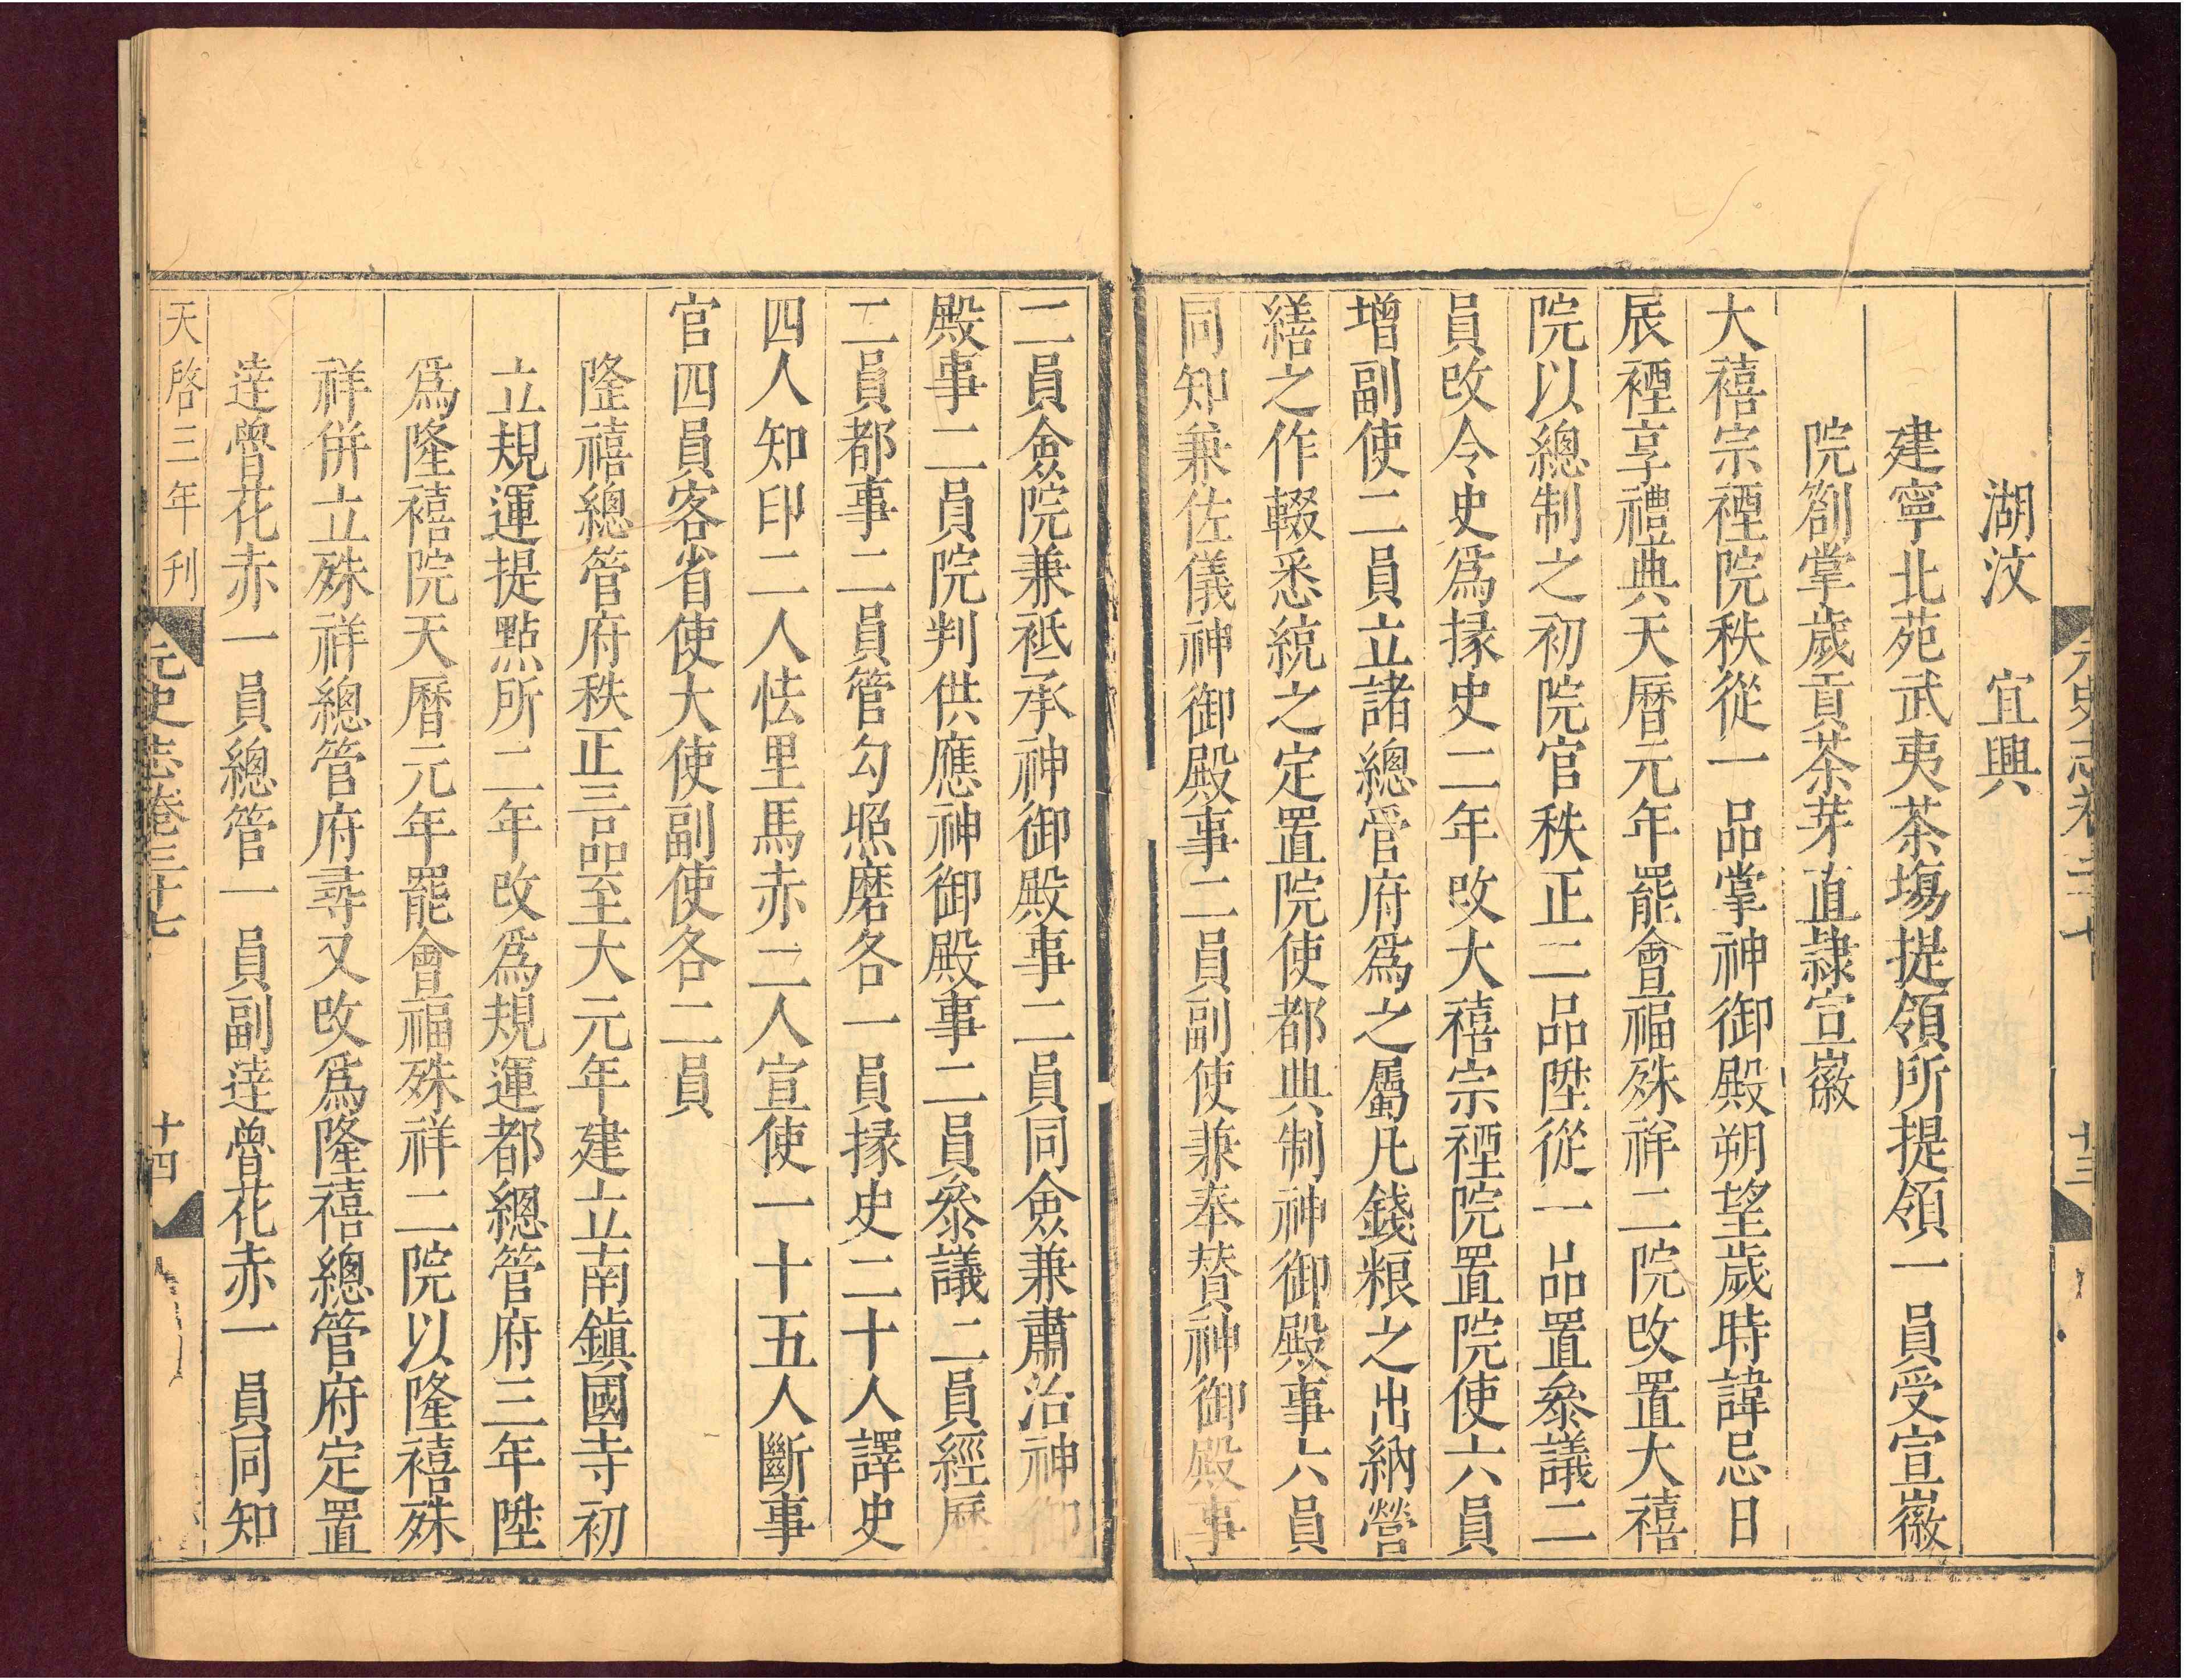 元史志卷三十七 十三
湖㳇 宜興
建寧北苑武夷茶塲提領所提領一員受宣徽
院劄掌歲貢茶芽直隷宣徽
大禧宗禋院秩從一品掌神御殿朔望歲時諱忌日
辰禋享禮典天曆元年罷會福殊祥二院改置大禧
院以總制之初院官秩正二品陞從一品置叅議二
員改令史爲掾史二年改大禧宗禋院置院使六員
增副使二員立諸總管府爲之屬凡錢粮之出納營
繕之作輟悉統之定置院使都典制神御殿事六員
同知兼佐儀神御殿事二員副使兼奉賛神御殿事
二員僉院兼祗承神御殿事二員同僉兼肅治神御
殿事二員院判供應神御殿事二員叅議二員經歷
二員都事二員管勾照磨各一員掾史二十人譯史
四人知印二人怯里馬赤二人宣使一十五人斷事
官四員客省使大使副使各二員
隆禧總管府秩正三品至大元年建立南鎭國寺初
立規運提點所二年改爲規運都總管府三年陞
爲隆禧院天曆元年罷會福殊祥二院以隆禧殊
祥併立殊祥總管府尋又改爲隆禧總管府定置
達魯花赤一員總管一員副達魯花赤一員同知
天啓三年刊 元史志卷三十七 十四